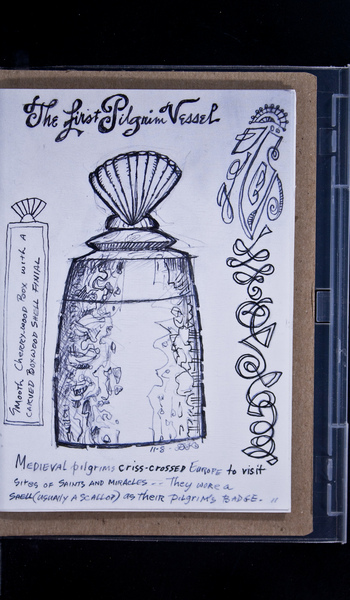 The First Pilgrim Vessel
Smooth Cherry-wood Box with a
carved Boxwood Shell Finial
11-8-
Medieval pilgrims criss-crossed Europe to visit
sites of Saints and Miracles -- They wore a
shell (usually a scallop) as their pilgrim's badge.